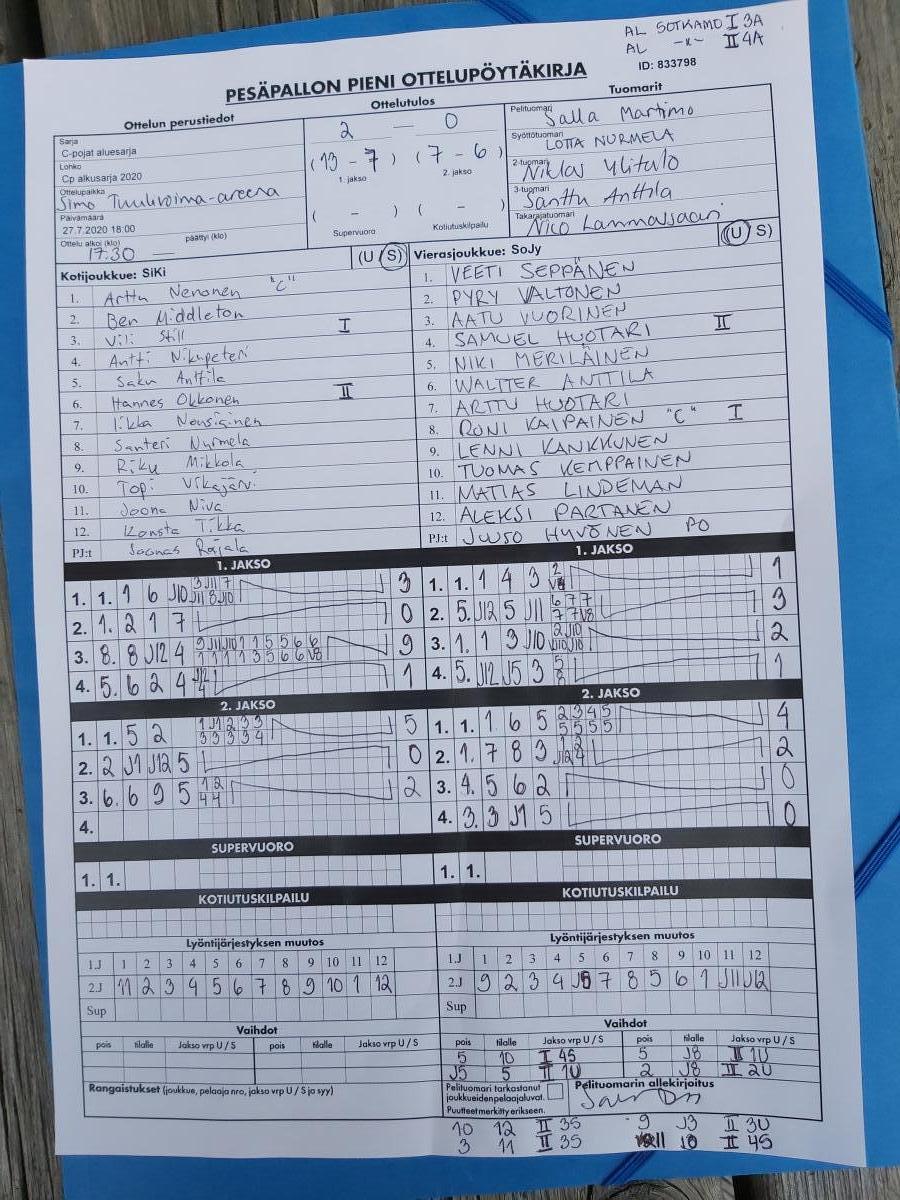 AL SOTKAMO I 3A
AL -"- II 4A
ID: 833798
PESÄPALLON PIENI OTTELUPÖYTÄKIRJA
Ottelun perustiedot
Sarja
C-pojat aluesarja
Lohko
Cp alkusarja 2020
Ottelupaikka
Simo Tuulivoima-areena
Päivämäärä
27.7.2020 18:00
Ottelu alkoi (klo) päättyi (klo)
17:30 —
Ottelutulos
2 — 0
(13 - 7) (7 - 6)
1. jakso 2. jakso
( - ) ( - )
Supervuoro Kotiutuskilpailu
Tuomarit
Pelituomari
Salla Martimo
Syöttötuomari
LOTTA NURMELA
2-tuomari
Niklas Ylitulo
3-tuomari
Santtu Anttila
Takarajatuomari
Nico Lammassaari
Kotijoukkue: SiKi (U S)
1. Arttu Nenonen "C"
2. Ben Middleton
3. Vili Still I
4. Antti Nikupeteri
5. Saku Anttila
6. Hannes Okkonen II
7. Iikka Nousiainen
8. Santeri Nurmela
9. Riku Mikkola
10. Topi Vikajärvi
11. Joona Niva
12. Konsta Tikka
PJ:t Joonas Rajala
Vierasjoukkue: SoJy (U S)
1. VEETI SEPPÄNEN
2. PYRY VALTONEN
3. AATU VUORINEN
4. SAMUEL HUOTARI II
5. NIKI MERILÄINEN
6. WALTTER ANTTILA
7. ARTTU HUOTARI
8. RONI KAIPAINEN "C" I
9. LENNI KANKKUNEN
10. TUOMAS KEMPPAINEN
11. MATIAS LINDEMAN
12. ALEKSI PARTANEN
PJ:t JUUSO HYVÖNEN PO
1. JAKSO
1. 1. 1 6 J10 3
2. 1. 2 1 7 0
3. 8. 8 J12 4 9
4. 5. 6 2 4 1
1. JAKSO
1. 1. 1 4 3 1
2. 5. J12 5 J11 3
3. 1. 1 3 J10 2
4. 5. J12 J5 3 1
2. JAKSO
1. 1. 5 2 5
2. 2 J1 J12 5 0
3. 6. 6 9 5 2
4.
2. JAKSO
1. 1. 1 6 5 2 3 4 5 4
5 5 5 5
2. 1. 7 8 3 2
3. 4. 5 6 2 0
4. 3. 3 J1 5 0
SUPERVUORO
1. 1.
SUPERVUORO
1. 1.
KOTIUTUSKILPAILU
KOTIUTUSKILPAILU
Lyöntijärjestyksen muutos
1.J 1 2 3 4 5 6 7 8 9 10 11 12
2.J 11 2 3 4 5 6 7 8 9 10 1 12
Sup
Lyöntijärjestyksen muutos
1.J 1 2 3 4 5 6 7 8 9 10 11 12
2.J 9 2 3 4 7 8 5 6 1 J11 J12
Sup
Vaihdot
pois tilalle Jakso vrp U / S pois tilalle Jakso vrp U / S
Vaihdot
pois tilalle Jakso vrp U / S pois tilalle Jakso vrp U / S
5 10 I 4S 5 J8 II 1U
J5 5 II 1U 2 J8 II 2U
Rangaistukset (joukkue, pelaaja nro, jakso vrp U / S ja syy)
Pelituomari tarkastanut
joukkueidenpelaajaluvat.
Puutteet merkitty erikseen.
Pelituomarin allekirjoitus
10 12 II 3S 9 J3 II 3U
3 11 II 3S II 4S